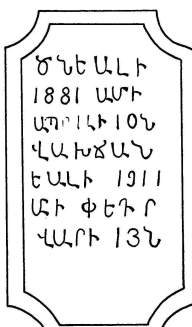 ԾՆԵԱԼԻ
1881 ԱՄԻ
ԱՊՐԻԼԻ 10Ն
ՎԱԽՃԱՆ
ԵԱԼԻ 1911
ԱՄԻ ՓԵՏՐ
ՎԱՐԻ 13Ն